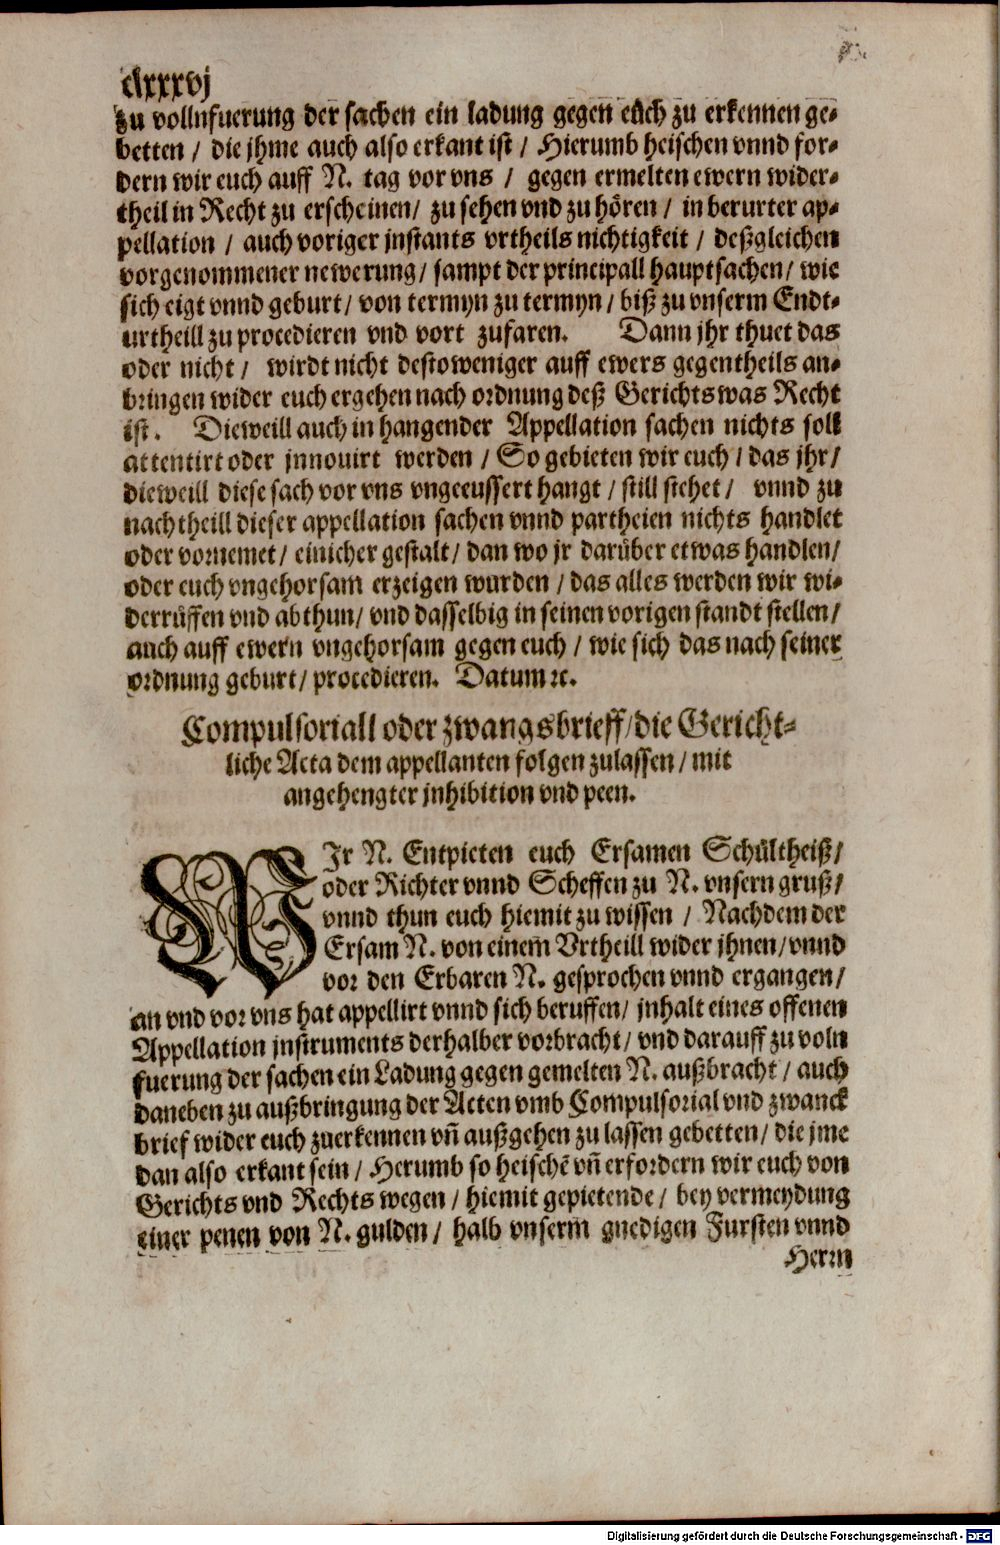 clxxxvj
zu vollnfuerung der sachen ein ladung gegen eüch zu erkennen ge-
betten / die jhme auch also erkant ist / Hierumb heischen vnnd for-
dern wir euch auff N. tag vor vns / gegen ermelten ewern wider-
theil in Recht zu erscheinen / zu sehen vnd zu hören / in berurter ap-
pellation / auch voriger jnstants vrtheils nichtigkeit / deßgleichen
vorgenommener newerung / sampt der principall hauptsachen / wie
sich eigt vnnd geburt / von termyn zu termyn / biß zu vnserm Endt-
urtheill zu procedieren vnd vort zufaren. Dann jhr thuet das
oder nicht / wirdt nicht destoweniger auff ewers gegentheils an-
bringen wider euch ergehen nach ordnung deß Gerichts was Recht
ist. Dieweill auch in hangender Appellation sachen nichts soll
attentirt oder jnnouirt werden / So gebieten wir euch / das jhr /
dieweill diese sach vor vns vngeeussert hangt / still stehet / vnnd zu
nachtheill dieser appellation sachen vnnd partheien nichts handlet
oder vornemet / einicher gestalt / dan wo jr darüber etwas handlen /
oder euch vngehorsam erzeigen wurden / das alles werden wir wi-
derrüffen vnd abthun / vnd dasselbig in seinen vorigen standt stellen /
auch auff ewern vngehorsam gegen euch / wie sich das nach seiner
ordnung geburt / procedieren. Datum ꝛc.
Compulsoriall oder zwangsbrieff / die Gericht-
liche Acta dem appellanten folgen zulassen / mit
angehengter jnhibition vnd peen.
WIr N. Entpieten euch Ersamen Schültheiß /
oder Richter vnnd Scheffen zu N. vnsern gruß /
vnnd thun euch hiemit zu wissen / Nachdem der
Ersam N. von einem Vrtheill wider jhnen / vnnd
vor den Erbaren N. gesprochen vnnd ergangen /
an vnd vor vns hat appellirt vnnd sich beruffen / jnhalt eines offenen
Appellation jnstruments derhalber vorbracht / vnd darauff zu voln
fuerung der sachen ein Ladung gegen gemelten N. außbracht / auch
daneben zu außbringung der Acten vmb Compulsorial vnd zwanck
brief wider euch zuerkennen vñ außgehen zu lassen gebetten / die jme
dan also erkant sein / Herumb so heischē vñ erfordern wir euch von
Gerichts vnd Rechts wegen / hiemit gepietende / bey vermeydung
einer penen von N. gulden / halb vnserm gnedigen Fursten vnnd
Herrn
Digitalisierung gefördert durch die Deutsche Forschungsgemeinschaft - DFG